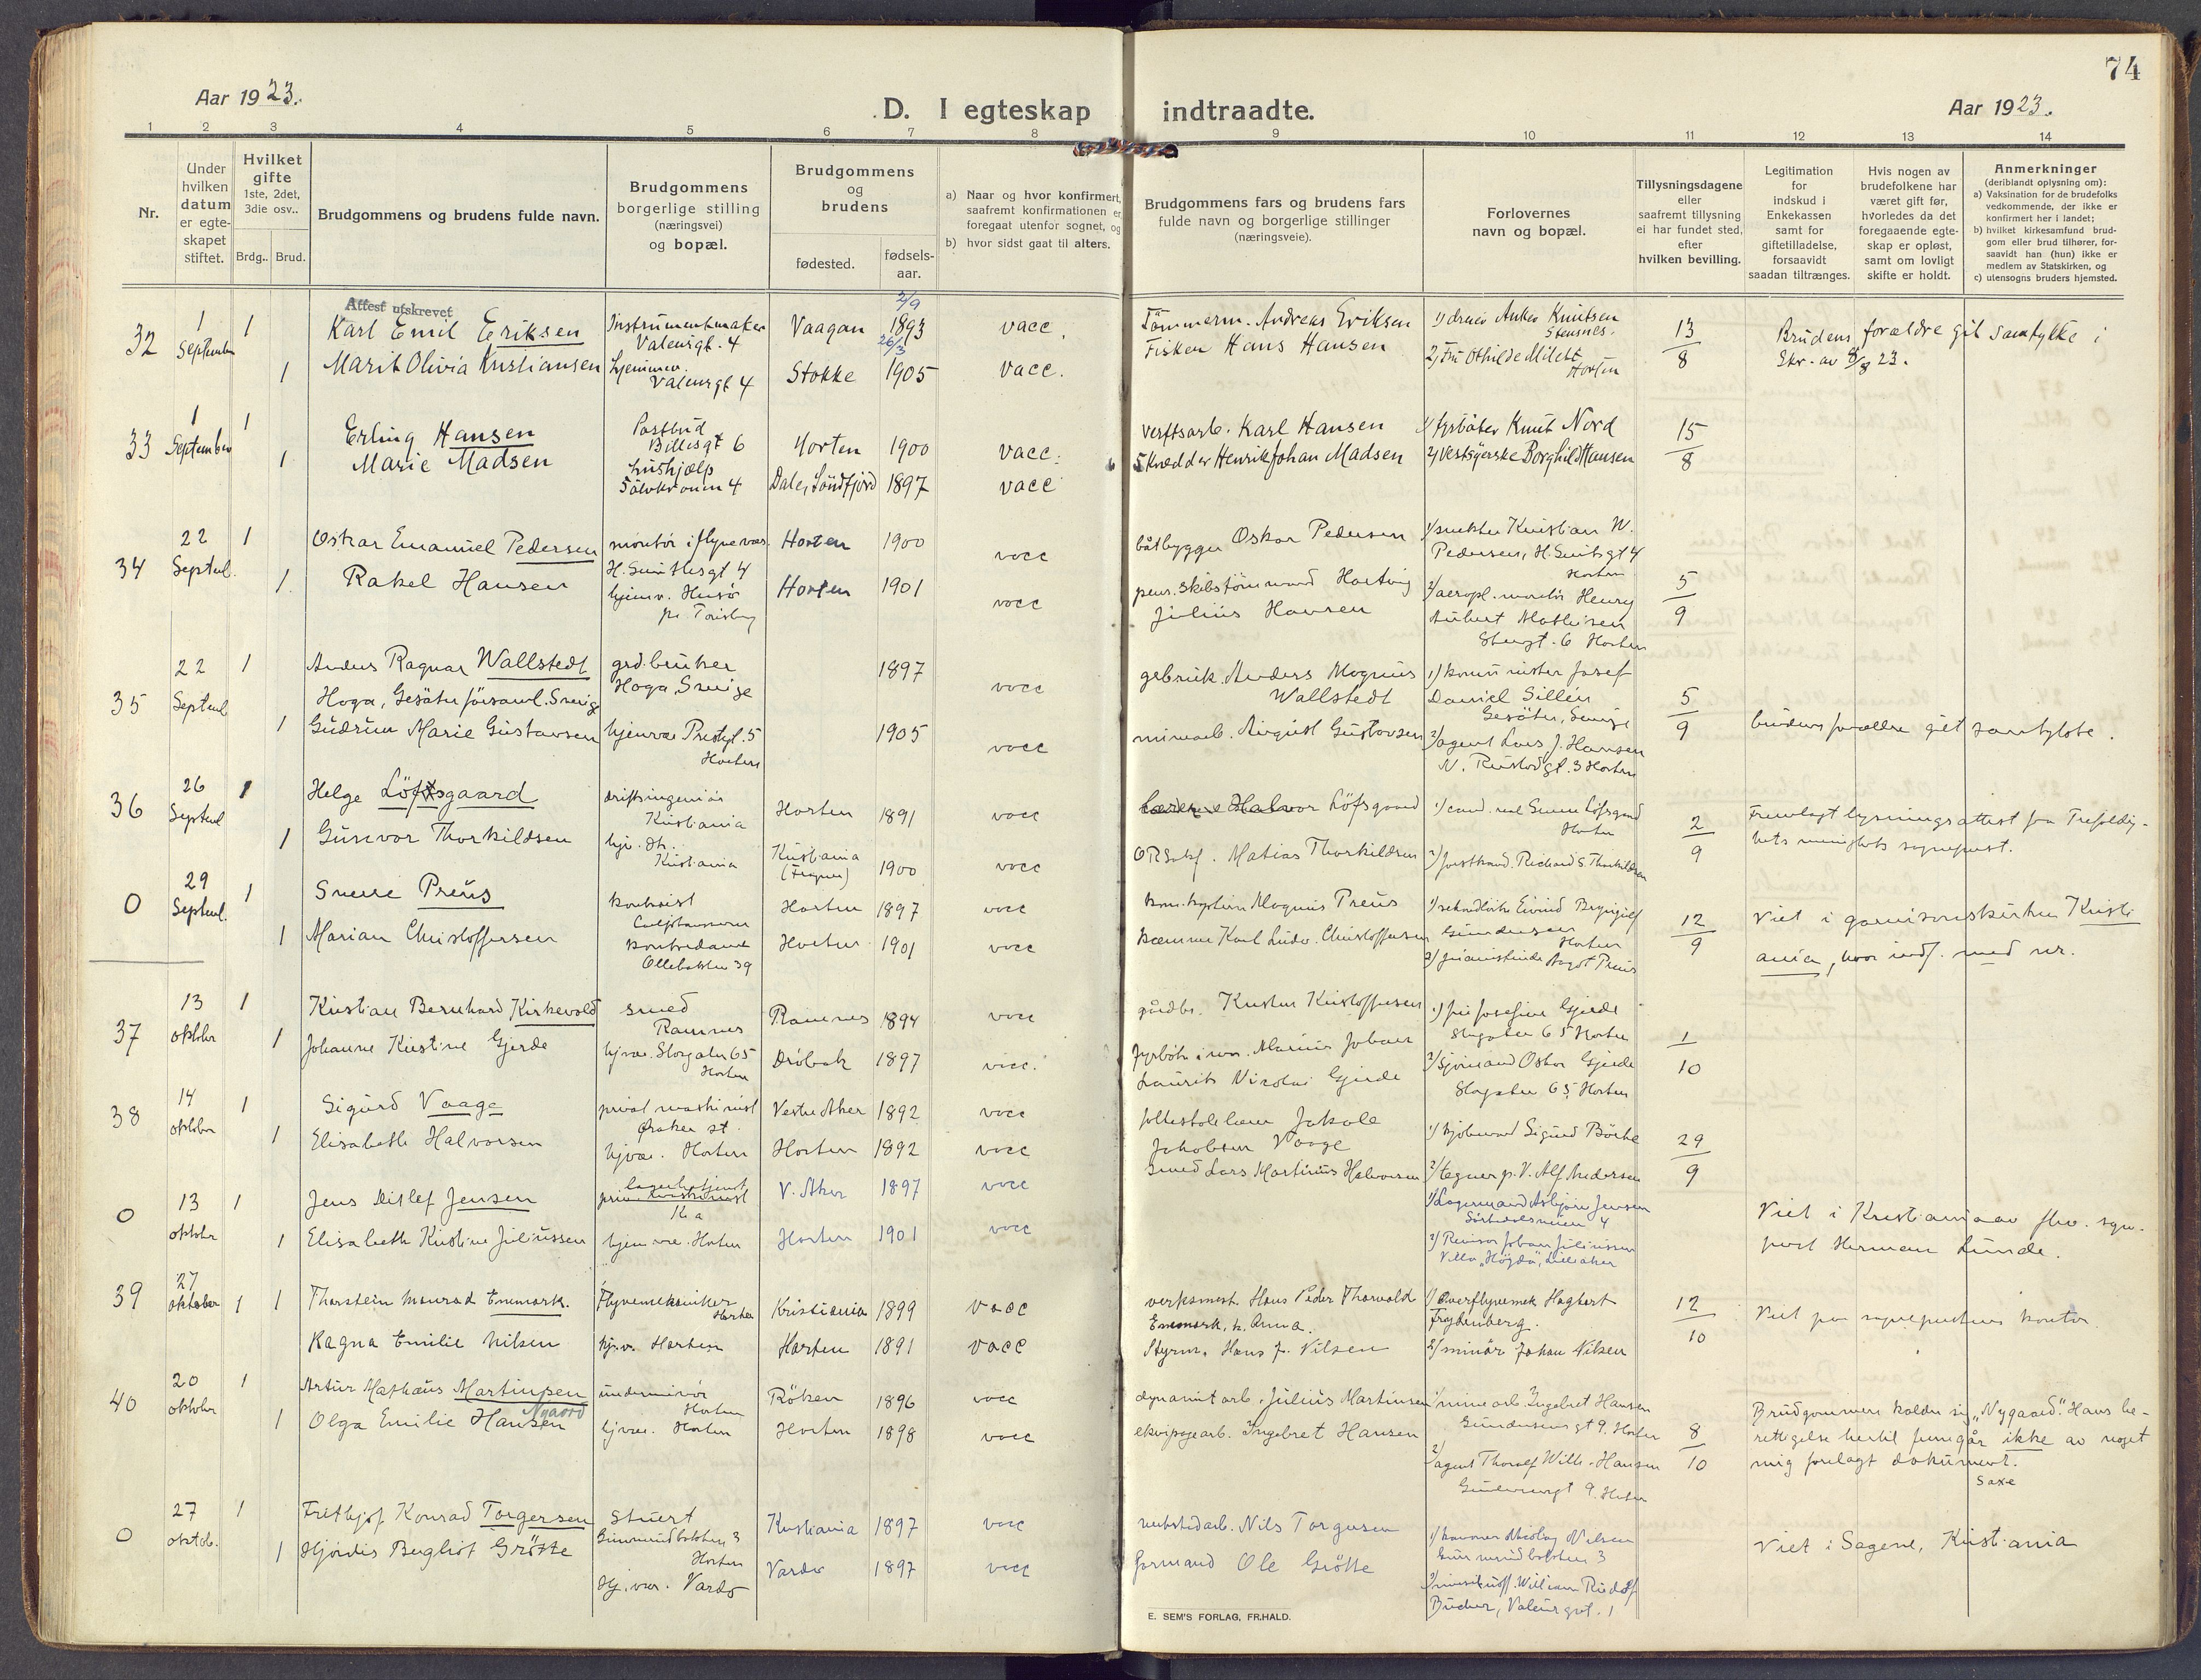 74
Aar 1923.
D. I egteskap indtraadte.
Aar 1923.
1 2 3 4 5 6 7 8 9 10 11 12 13 14
Nr.
Under hvilken datum er egteskapet stiftet.
Hvilket gifte 1ste, 2det, 3die osv..
Brdg.. Brud.
Brudgommens og brudens fulde navn.
Brudgommens borgerlige stilling (næringsvei) og bopæl.
Brudgommens og brudens
fødested.
fødsels-aar.
a) Naar og hvor konfirmert, saafremt konfirmationen er foregaat utenfor sognet, og
b) hvor sidst gaat til alters.
Brudgommens fars og brudens fars fulde navn og borgerlige stillinger (næringsveie).
Forlovernes navn og bopæl.
Tillysningsdagene eller saafremt tillysning ei har fundet sted, efter hvilken bevilling.
Legitimation for indskud i Enkekassen samt for giftetilladelse, forsaavidt saadan tiltrænges.
Hvis nogen av brudefolkene har været gift før, hvorledes da det foregaaende egteskap er opløst, samt om lovligt skifte er holdt.
Anmerkninger (deriblandt oplysning om):
a) Vaksination for de brudefolks vedkommende, der ikke er konfirmert her i landet;
b) hvilket kirkesamfund brudgom eller brud tilhører, forsaavidt han (hun) ikke er medlem av Statskirken, og
c) utensogns bruders hjemsted.
Attest utskrevet
32 1 September 1 Karl Emil Eriksen Instrumentmaker Valeursgt. 4 Vaagan 2/9 1893 vacc. Tømmerm. Andreas Eriksen Anker Knutsen 13/8 Brudens forældre git samtykke i
1 Marit Olivia Kristiansen hjemmev. Valeursgt 4 Stokke 26/3 1905 vacc. Fisker Hans Hansen 2) Fru Othilde Horten Skr. av 8/8 23.
33 1 September 1 Erling Hansen Postbud Billesgt 6 Horten 1900 vacc. verftsarb. Karl Hansen 1) fyrbøter Knut Nord 15/8
1 Marie Madsen hushjælp Sølvkronen 4 Dale, Søndfjord 1897 vacc Skrædder Henrik Johan Madsen 2) Vestsyerske Borghild Hansen
34 22 Septemb. 1 Oskar Emanuel Pedersen montør i flyvevæs. H. Smithsgt 4 Horten 1900 vacc båtbygger Oskar Pedersen 1) snekker Kristian W. Pedersen, H. Smitsgt 4 Horten 5/9
1. Rakel Hansen hjemv. Husø pr Tønsberg Horten 1901 vacc pens. skibstømmermand Hartvig Julius Hansen 2) aeropl. montør Henry Aubert Mathisen Storgt. 6 Horten
35 22 Septemb 1 Anders Ragnar Wallstedt grd.bruker 1897 vacc gbruk. Anders Magnus Wallstedt 1) komminister Josef Daniel Sillén Gesäter, Sverige 5/9
Hoga, Gesäter församl. Sverige Hoga, Sverige
1 Gudrun Marie Gustavsen hjemvær Prestegt. 5 Horten 1905 vacc minearb. August Gustavsen 2) agent Lars J. Hansen Horten brudens forældre git samtykke.
36 26 Septemb 1 Helge Löfsgaard driftsingeniør Kristiania Horten 1891 vacc Halvor Löfsgaard 1) cand. real Löfsgaard Horten 2/9 Fremlagt lysningsattest fra Trefoldig-
1 Gunvor Thorkildsen hjv. dtr. Kristiania Kristiania 1900 vacc Matias Thorkildsen 2) Richard S. Thorkildsen hets menighets sogneprest.
0 29 Septemb. 1 Sverre Preus kontorist Horten 1897 vacc kom.kaptein Magnus Preus 1) Eivind Gundersen Horten 12/9 Viet i garnisonskirken Kristi
1 Marian Christoffersen kontordame Ollebakken 39 Horten 1901 vacc kæmner Karl Ludv. Christoffersen 2) Aagot Preus ania, hvor indf. med nr.
37 13 oktober 1 Kristian Bernhard Kirkevold smed Ramnes Ramnes 1894 vacc gårdbr. Kristen Kristoffersen 1) fru Josefine Gjerde Storgaten 65 Horten 1/10
1 Johanne Kristine Gjerde hjvær. Storgaten 65 Horten Drøbak 1897 vacc. fyrbøter Marius Johan Laurits Nicolai Gjerde 2) Sjømand Oskar Gjerde Storgaten 65 Horten
38 14 oktober 1 Sigurd Vaage privat maskinist Vestre Aker 1892 vacc folkeskolelærer Jakob Jakobsen Vaage 1) kjøbmand Sigurd 29/9
1 Elisabeth Halvorsen hjvær. Horten Horten 1892 vacc smed Lars Martinius Halvorsen 2) tegner p. V. Alf Andersen
0 13 oktober 1 Jens Ditlef Jensen lagerbetjent Kr.a V. Aker 1897 vacc 1) Lagermand Asbjørn Jensen Sørkedalsveien 4 Viet i Kristiania av sogne-
1 Elisabeth Kristine Juliussen hjemvær. Horten Horten 1901 vacc 2) Revisor Johan Juliussen Villa "Høgda", Lilleaker prest Herman Lunde.
39 27 oktober 1 1 Thorstein Monrad Enmark. Flyvemekaniker Horten Kristiania 1899 vacc verksmest. Hans Peder Thorvald Enmark, h. Anna. 1) Overflyvemek Haghart Frydenberg. 12/10 Viet paa sogneprestens kontor
Ragna Emilie Nilsen hjv. Horten Horten 1891 vacc Styrm. Hans J. Nilsen 2) minør Johan Nilsen
40 20 oktober 1 Artur Mathæus Martinsen Nygaard underminør Horten Røken 1896 vacc dynamitarb. Julius Martinsen 1) minearb. Ingebret Hansen Gundersensgt 9. Horten 8/10 Brudgommen kalder sig „Nygaard". Hans be-
1 Olga Emilie Hansen hjvær. Horten Horten 1898 vacc ekvipagearb. Ingebret Hansen 2) agent Thoralf Willi. Hansen 9. Horten rettigelse hertil fremgår ikke av noget
mig forelagt dokument.
Saxe
0 27 oktob. 1 Frithjof Konrad Torgersen Stuert 3 Horten Kristiania 1897 vacc verkstedarb. Nils Torgersen Nicolay Nilsen 3 Viet i Sagene, Kristiania
1 Hjørdis Bergliot Grøtte Hj.vær. Vardø Vardø 1897 vacc formand Ole Grøtte William Rudolf 1
E. SEM'S FORLAG, FR.HALD.